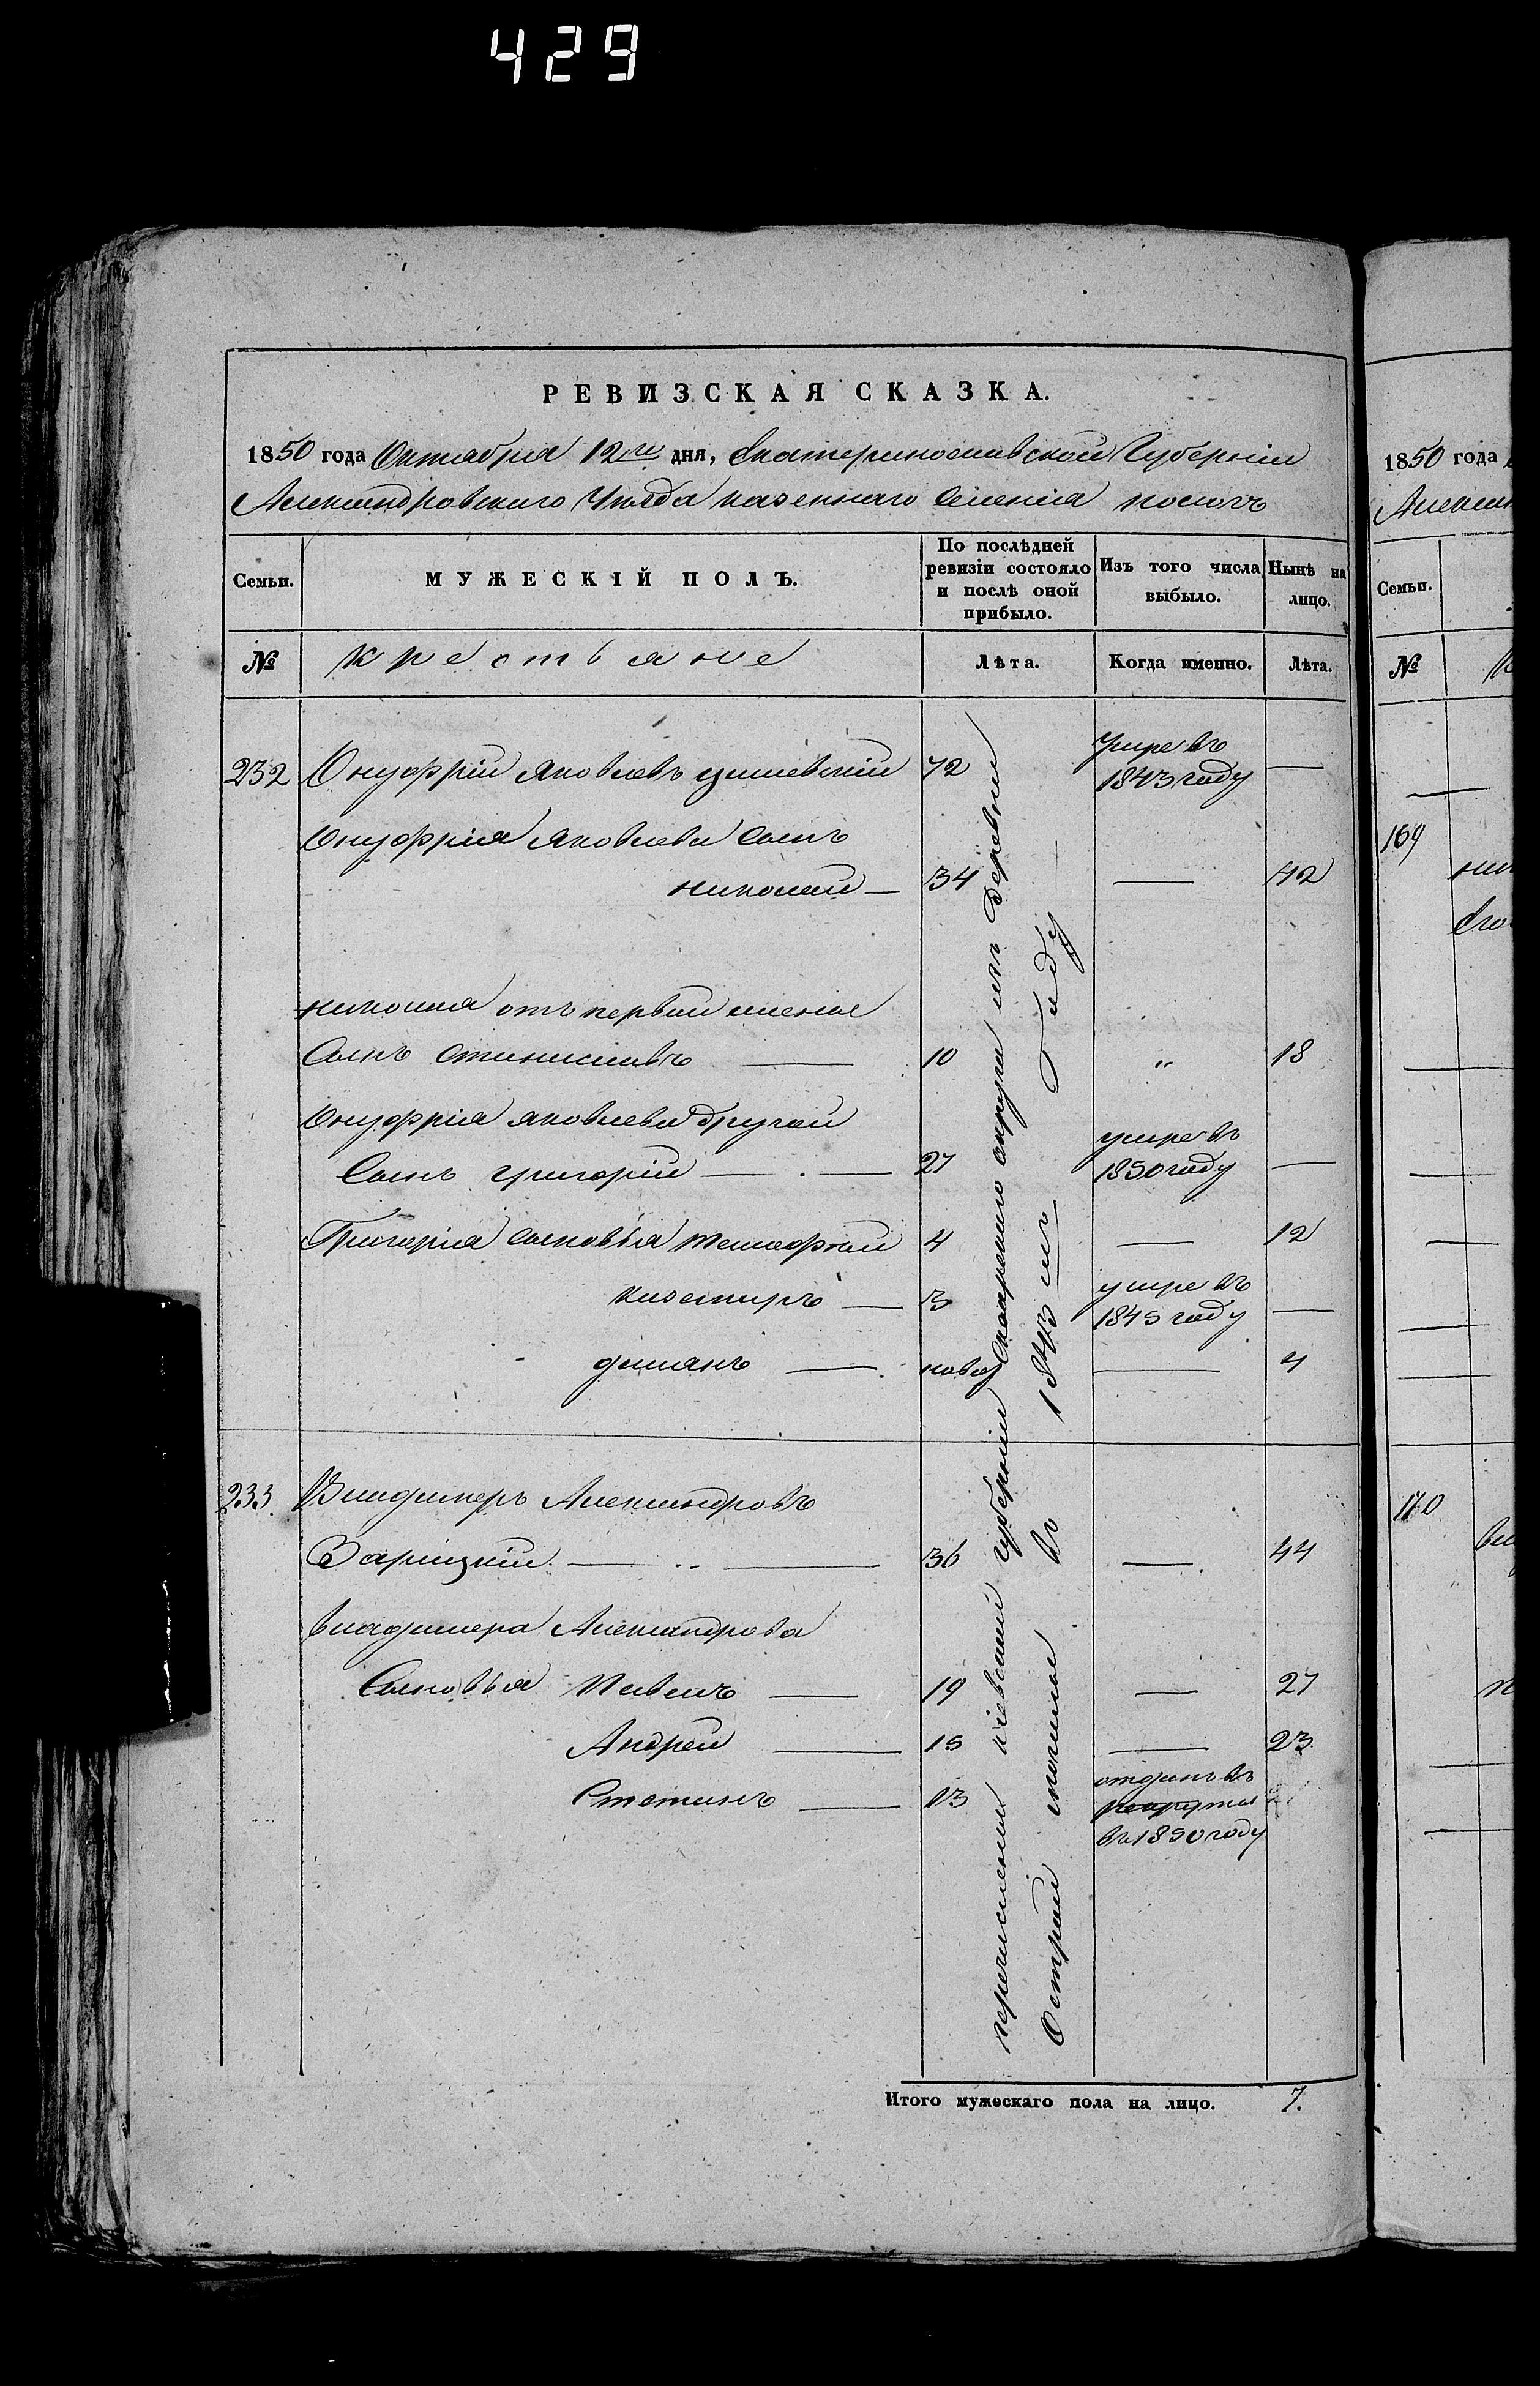 429
РЕВИЗСКАЯ СКАЗКА.
1850 года Октября 12го дня, Екатеринославской Губерніи
Александровскаго Уѣзда казеннаго селенія
Семьи.
МУЖЕСКІЙ ПОЛЪ.
По послѣдней ревизіи состояло и послѣ оной прибыло.
Изъ того числа выбыло.
Нынѣ на лицо.
№
крестьяне
Лѣта.
Когда именно.
Лѣта.
232 Онуфрій Яковлевъ 72 умре въ 1843 году —
Онуфрія Яковлева сынъ
николай — 34 — 42
николая отъ первой жены
Сынъ станиславъ — 10 „ 18
Онуфрія яковлева другой
Сынъ григорій — 27 умре въ 1850 году —
Григорія сыновья тимофей 4 — 12
казимиръ — 3 умре въ 1845 году —
демянъ — новор — 4
233. Владимеръ Александровъ
Зарицкій — 36 — 44
владимера Александрова
Сыновья Павелъ — 19 — 27
Андрей — 15 — 23
Степанъ — 13 отданъ въ рекруты въ 1850 году
перечислены кіевской губерніи округа изъ деревни
Острой могилы въ 1843 мъ Году
Итого мужескаго пола на лицо. 7.
1850 года
Алексан
Семьи.
№
169
ни
его
170
вла
п